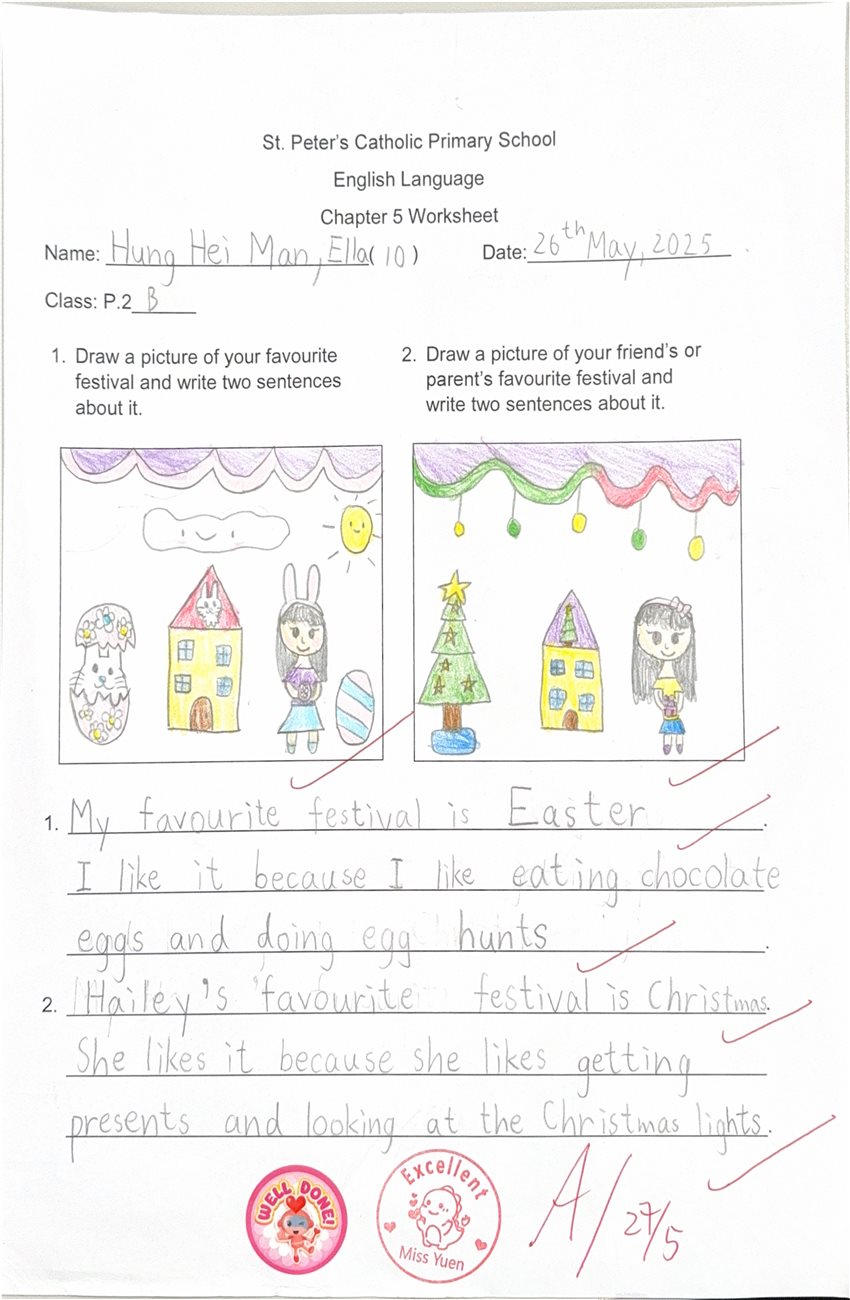 St. Peter's Catholic Primary School
English Language
Chapter 5 Worksheet
Name: Hung Hei Man, Ella (10) Date: 26th May, 2025
Class: P.2 B
1. Draw a picture of your favourite
festival and write two sentences
about it.
2. Draw a picture of your friend's or
parent's favourite festival and
write two sentences about it.
1. My favourite festival is Easter.
I like it because I like eating chocolate
eggs and doing egg hunts.
2. Hailey's favourite festival is Christmas.
She likes it because she likes getting
presents and looking at the Christmas lights.
WELL DONE!
Excellent
Miss Yuen
A/
27/5